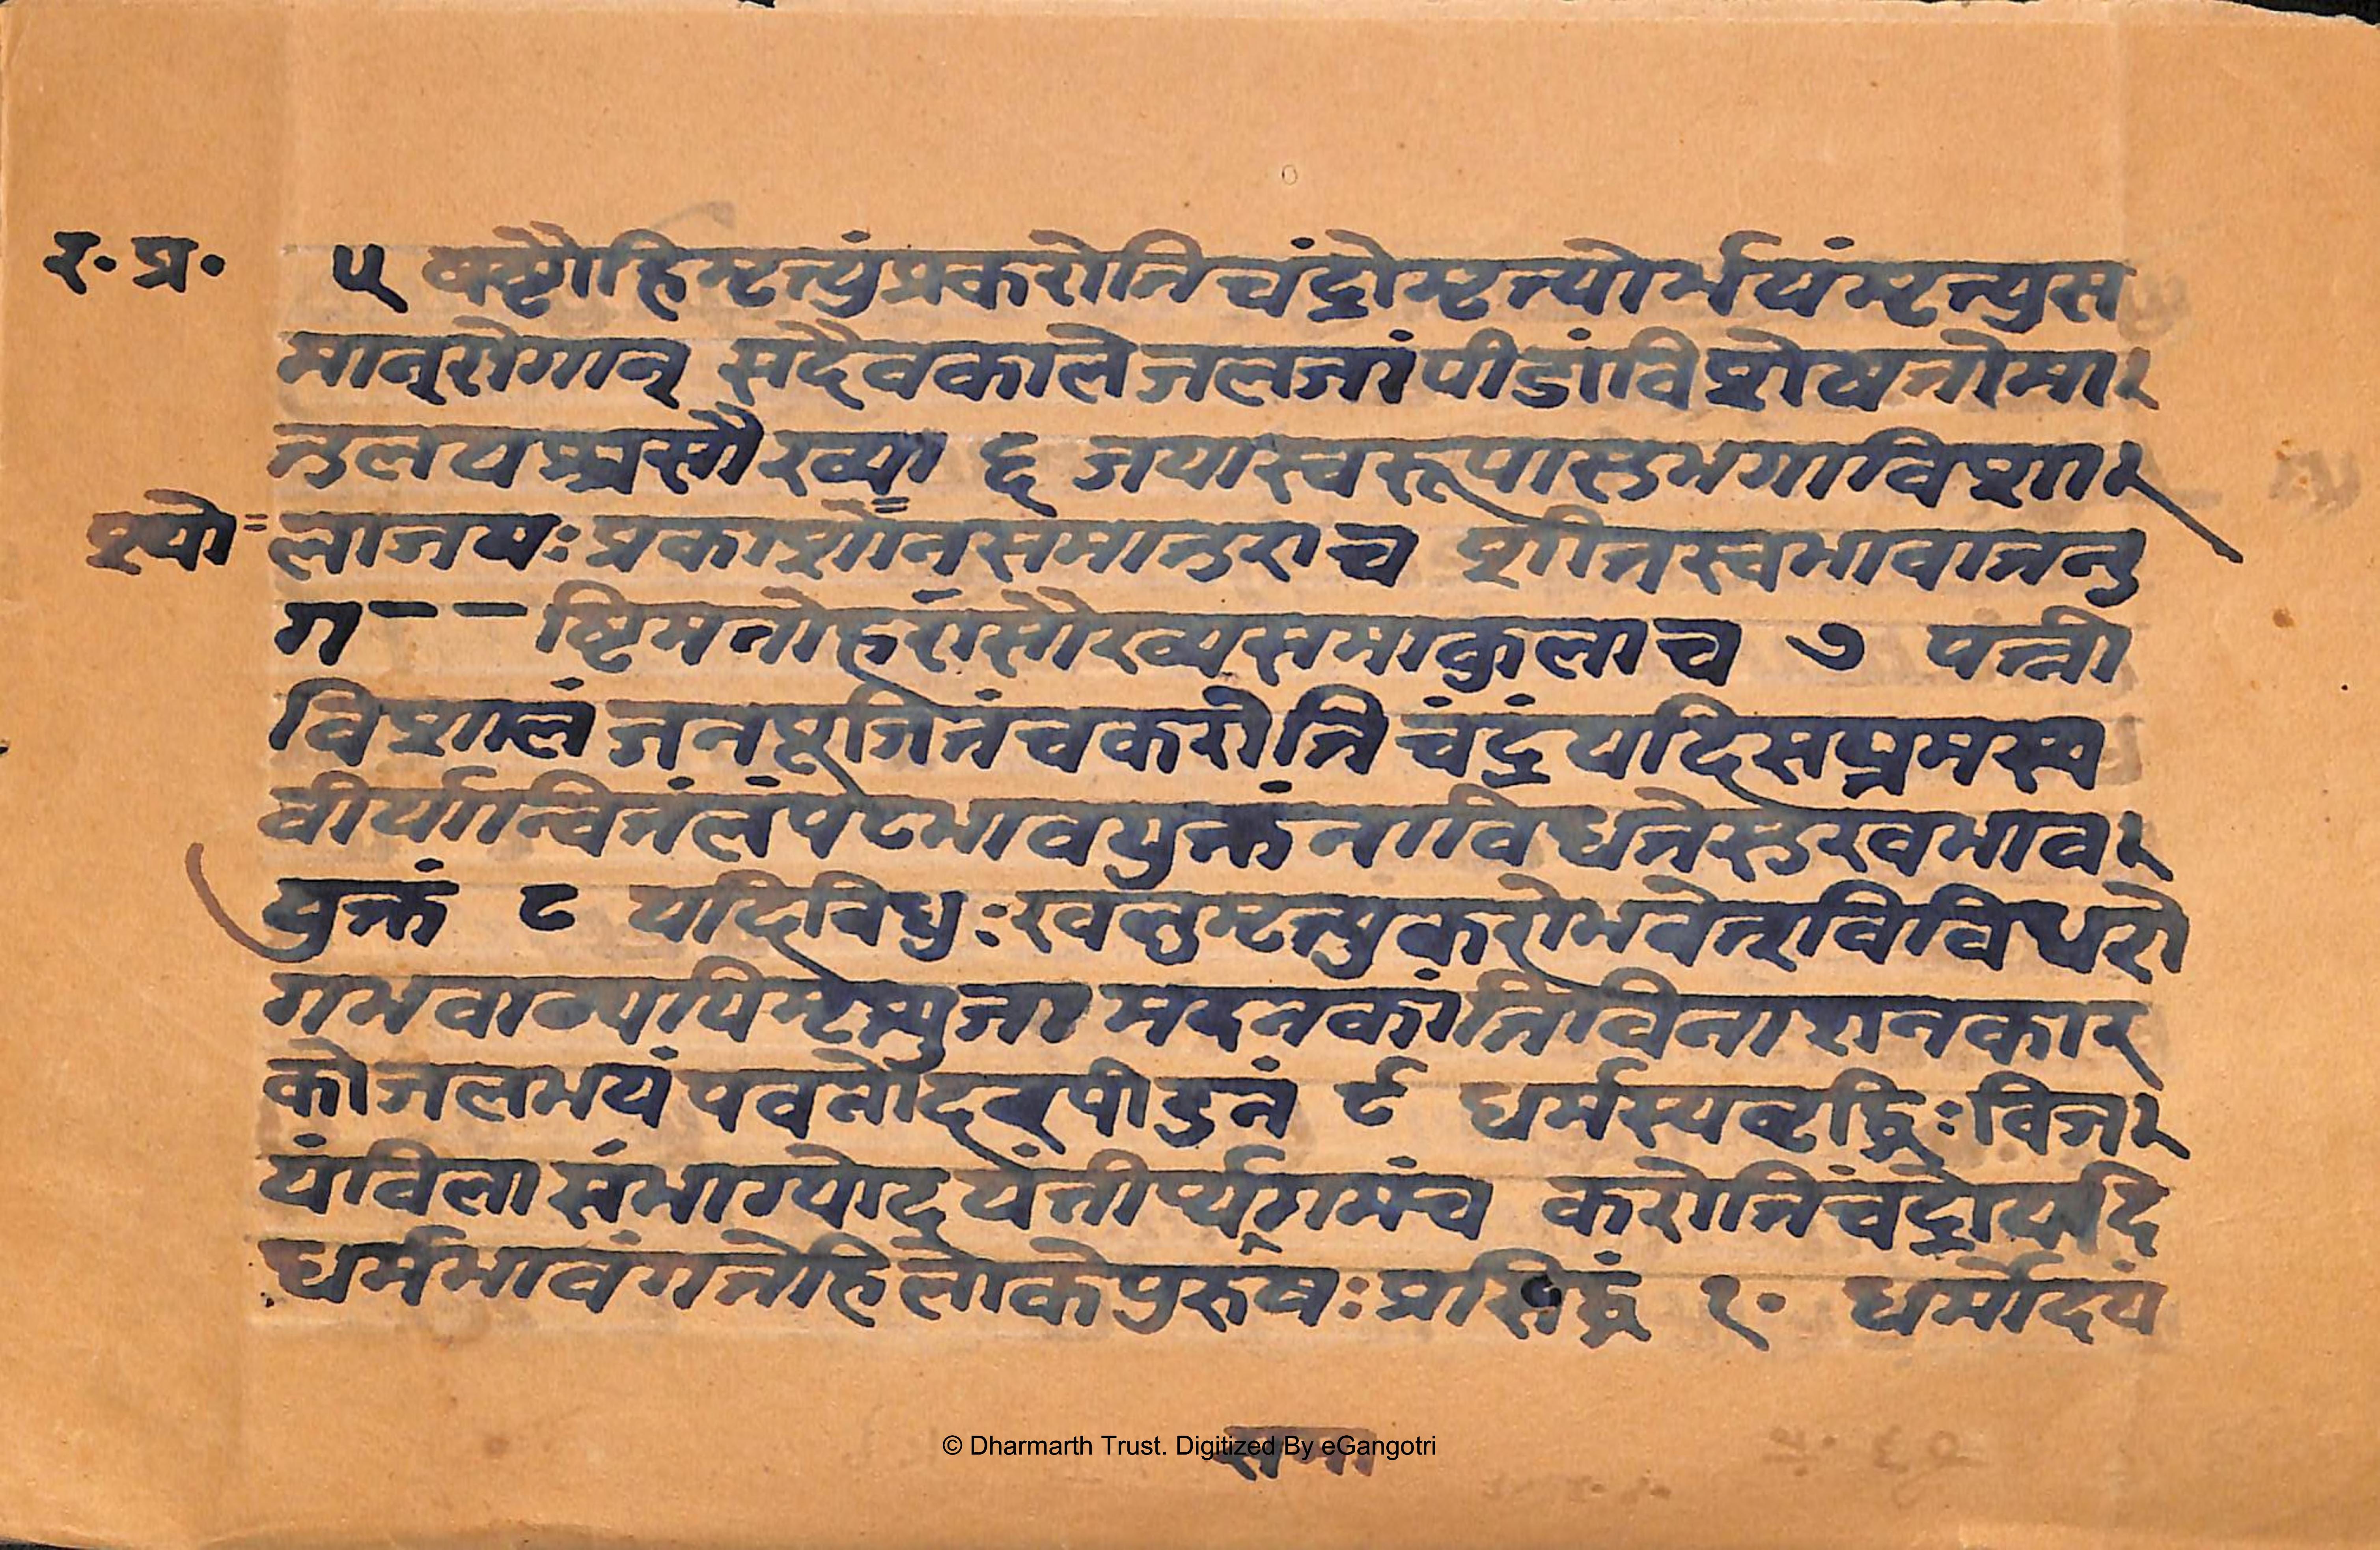 र॰ प्र॰
५ षष्टोहिमृत्युंप्रकरोतिचंद्रोमृत्योर्भयंमृत्युस
मान्रोगान् सदैवकालेजलजांपीडांविशेषतोमा
तुलयश्चसौख्यं ६ जयास्वरूपासुभगाविशा
श्यो
लाजयःप्रकाशोनसमातुराच शीतस्वभावातनु
ग – – ष्टिमनोहरासौख्यसमाकुलाच ७ पत्नी
विशालं जनपूजितंचकरोति चंद्र यदिसप्तमस्थ
वीर्यान्वितंलंपटभावयुक्तं नाविधत्तेसुखभाव
युक्तं ८ यदिविधुःखलुमृत्युकरोभवेत्विविधरो
गभवाव्यपिमृत्युजा मदनकांतिविनाशनकार
कोजलभयंपवनोदरपीडनं ९ धर्मस्यवृद्धिःविज
यंविलासंभाग्योदयंतीर्थगमंच करोतिचंद्रोयदि
धर्मभावंगतोहिलोकेपुरुषःप्रसिद्धं १॰ धर्मोदयं
समा
© Dharmarth Trust. Digitized By eGangotri